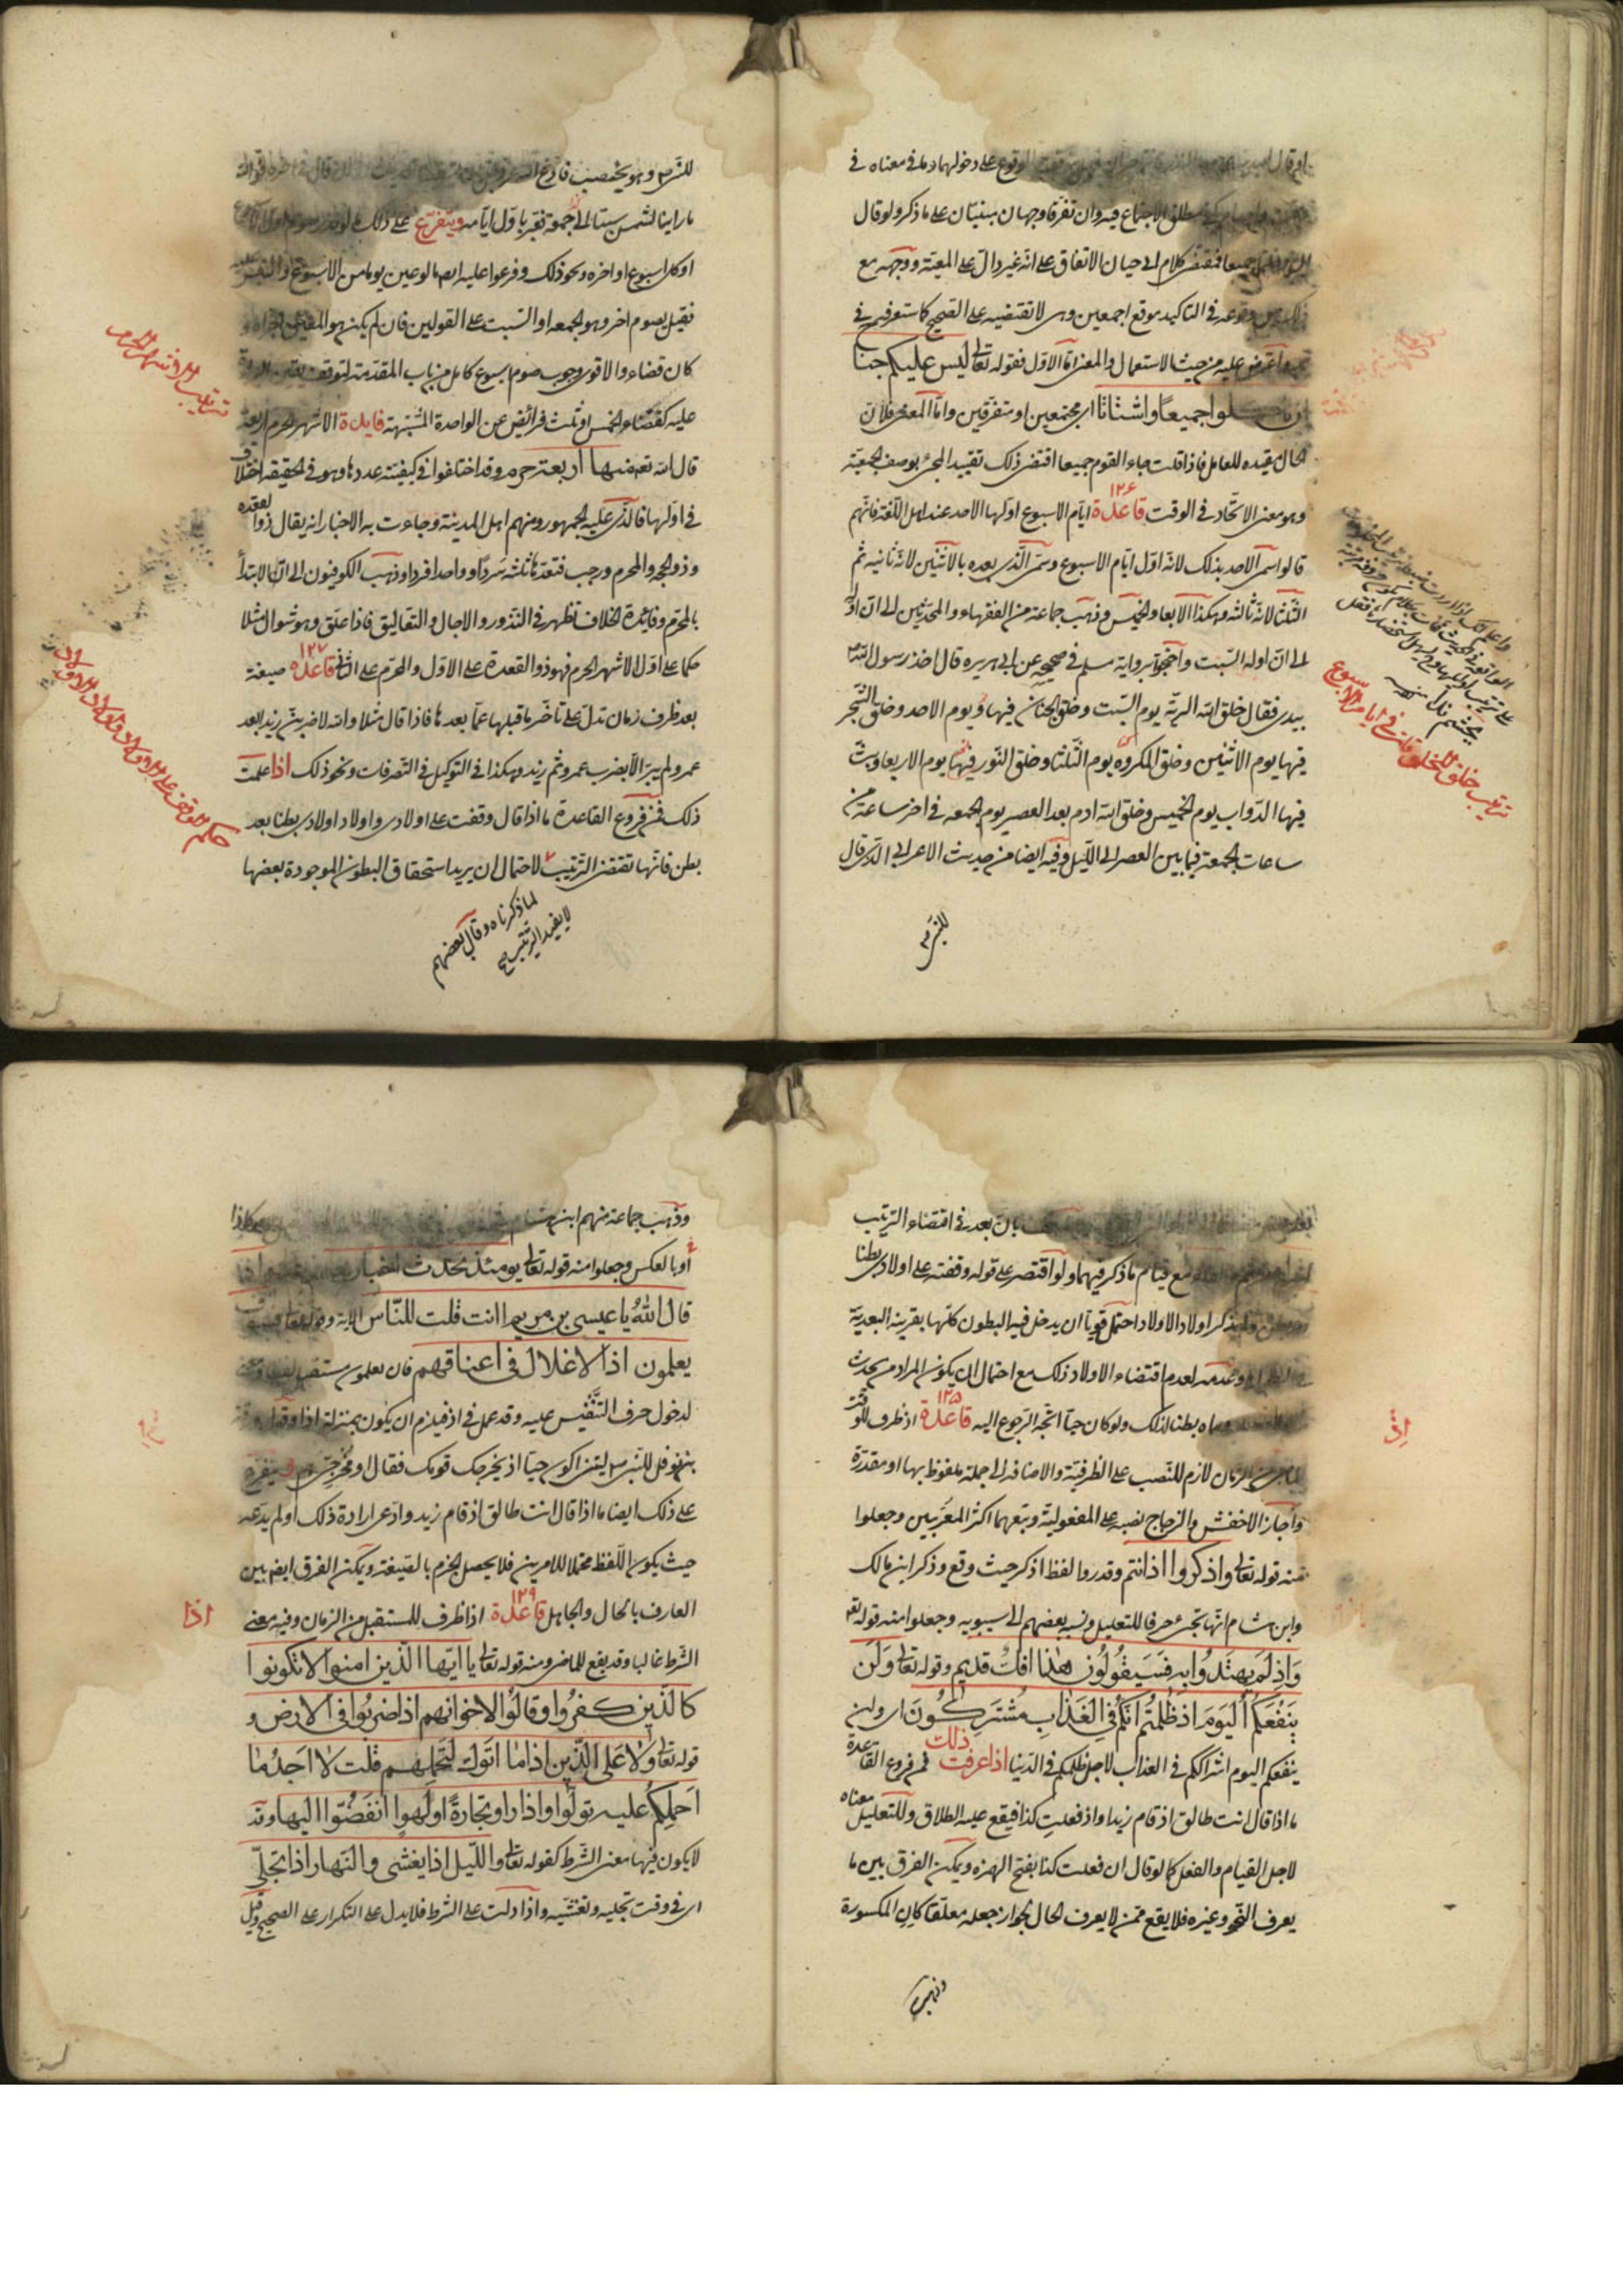 الوقوع على دخولهما وما في معناه في
مطلق الاجتماع فيه وان تفرقا وجهان مبنيان على ما ذكر ولو قال
جميعا فمقتضى كلام ابي حيان الاتفاق على انه غير دال على المعية ووجهه مع
وقوعه في التاكيد موقع اجمعين وهي لا تقتضيه على الصحيح كما ستعرفه في
واعترض عليه من حيث الاستعمال والمعنى اما الاول فقوله تعالى ليس عليكم جناح
ان تاكلوا جميعا او اشتاتا اي مجتمعين او متفرقين واما المعنى فلان
الحال مقيده للعامل فاذا قلت جاء القوم جميعا اقتضى ذلك تقييد المجئ بوصف الجمعية
وهو معنى الاتحاد في الوقت قاعدة ١٢٦ ايام الاسبوع اولها الاحد عند اهل اللغة فانهم
قالوا سمي الاحد بذلك لانه اول ايام الاسبوع وسمي الذي بعده بالاثنين لانه ثانيه ثم
الثلثا لانه ثالثه وهكذا الاربعا والخميس وذهب جماعة من الفقهاء والمحدثين الى ان اوله
الى ان اوله السبت واحتجوا برواية مسلم في صحيحه عن ابي هريره قال اخذ رسول الله
بيدي فقال خلق الله البرية يوم السبت وخلق الجبال فيها يوم الاحد وخلق الشجر
فيها يوم الاثنين وخلق المكروه يوم الثلثا وخلق النور فيها يوم الاربعا وبث
فيها الدواب يوم الخميس وخلق الله ادم بعد العصر يوم الجمعه في اخر ساعة من
ساعات الجمعة فيما بين العصر الى الليل وفيه ايضا من حديث الاعرابي الذي قال
للنبي
ترتيب خلق المخلوقات في ايام الاسبوع
للنبي وهو يخطب فادع
ما راينا الشمس سبتا الى جمعة فعبر باول ايامه ويتفرع على ذلك ما لو نذر صوم اول
او كل اسبوع او اخره ونحو ذلك وفرعوا عليه ايضا ما لو عين يوما من الاسبوع والتبس
فقيل يصوم اخره وهو الجمعه او السبت على القولين فان لم يكن هو المعين اجزاه و
كان قضاء والاقوى وجوب صوم اسبوع كامل من باب المقدمة لتوقف يقين البراءة
عليه كقضاء الخمس او ثلث فرائض عن الواحدة المشتبهة فايدة الاشهر الحرم اربعة
قال الله تعالى منها اربعة حرم وقد اختلفوا في كيفية عددها وهو في الحقيقه اختلاف
في اولها فالذي عليه الجمهور ومنهم اهل المدينة وجاءت به الاخبار انه يقال ذو القعده
وذو الحجه والمحرم ورجب فتعدها ثلثه سردا وواحدا فردا وذهب الكوفيون الى ان الابتدأ
بالمحرم وفائدة الخلاف تظهر في النذور والاجال والتعاليق فاذا علق وهو شوال مثلا
حكما على اول الاشهر الحرم فهو ذو القعدة على الاول والمحرم على الثاني قاعده ١٢٧ صيغة
بعد ظرف زمان تدل على تاخر ما قبلها عما بعدها فاذا قال مثلا والله لاضربن زيدا بعد
عمرو لم يبر الا بضرب عمرو ثم زيد وهكذا في التوكيل في التصرفات ونحو ذلك اذا علمت
ذلك فمن فروع القاعدة ما اذا قال وقفت على اولادي واولاد اولادي بطنا بعد
بطن فانها تقتضي الترتيب لا لاحتمال ان يريد استحقاق البطون الموجودة بعضها
لما ذكرناه وقال بعضهم
لا يفيد الترتيب
ترتيب الاشهر الحرم
حكم الوقف على الاولاد واولاد الاولاد
بان بعد في اقتضاء الترتيب
مع قيام ما ذكر فيهما ولو اقتصر على قوله وقفته على اولادي بطنا
بعد بطن ولم يذكر اولاد الاولاد احتمل قويا ان يدخل فيه البطون كلها بقرينه البعدية
وعدمه لعدم اقتضاء الاولاد ذلك مع احتمال ان يكون المراد من يحدث
وسماه بطنا لذلك ولو كان حيا اتجه الرجوع اليه قاعدة ١٢٨ اذ ظرف للوقت
الماضي من الزمان لازم للنصب على الظرفية والاضافه الى جملة ملفوظ بها او مقدرة
واجاز الاخفش والزجاج نصبه على المفعولية وتبعهما اكثر المعربين وجعلوا
منه قوله تعالى واذكروا اذ انتم وقدروا لفظ اذكر حيث وقع وذكر ابن مالك
وابن هشام انها تجئ حرفا للتعليل ونسبه بعضهم الى سيبويه وجعلوا منه قوله تعالى
واذ لم يهتدوا به فسيقولون هذا افك قديم وقوله تعالى ولن
ينفعكم اليوم اذ ظلمتم انكم في العذاب مشتركون اي ولن
ينفعكم اليوم اشتراككم في العذاب لاجل ظلمكم في الدنيا اذا عرفت ذلك فمن فروع القاعدة
ما اذا قال انت طالق اذ قام زيد او اذ فعلت كذا فيقع عليه الطلاق وللتعليل معناه
لاجل القيام والفعل كما لو قال ان فعلت كذا بفتح الهمزه ويمكن الفرق بين ما
يعرف النحو وغيره فلا يقع ممن لا يعرف الحال لجواز جعله معلقا كان المكسورة
وذهب
اذ
وذهب جماعة منهم ابن هشام
او بالعكس وجعلوا منه قوله تعالى يومئذ تحدث اخبارها
قال الله يا عيسى بن مريم اانت قلت للناس الاية وقوله تعالى فسوف
يعلمون اذ الاغلال في اعناقهم فان يعلمون مستقبل لفظا ومعنى
لدخول حرف التنفيس عليه وقد عمل في اذ فيلزم ان يكون بمنزلة اذا وقول ورقة
بن نوفل للنبي ليتني اكون حيا اذ يخرجك قومك فقال او مخرجي هم ويتفرع
على ذلك ايضا ما اذا قال انت طالق اذ قام زيد وادعى ارادة ذلك او لم يدعه
حيث يكون اللفظ محتملا للامرين فلا يحصل الجزم بالصيغة ويمكن الفرق ايضا بين
العارف بالحال والجاهل قاعدة ١٢٩ اذا ظرف للمستقبل من الزمان وفيه معنى
الشرط غالبا وقد يقع للماضي ومنه قوله تعالى يا ايها الذين امنوا لا تكونوا
كالذين كفروا وقالوا لاخوانهم اذا ضربوا في الارض و
قوله تعالى ولا على الذين اذا ما اتوك لتحملهم قلت لا اجد ما
احملكم عليه تولوا واذا راوا تجارة او لهوا انفضوا اليها وقد
لا يكون فيها معنى الشرط كقوله تعالى والليل اذا يغشى والنهار اذا تجلى
اي في وقت تجليه وتغشيه واذا دلت على الشرط فلا يدل على التكرار على الصحيح وقيل
اذا